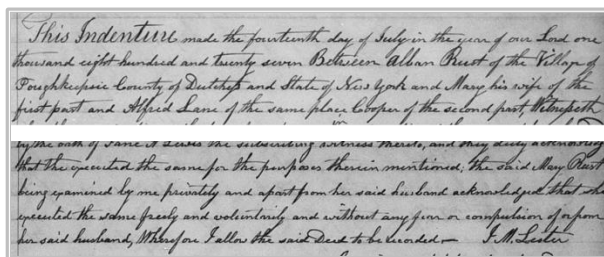 This Indenture made the fourteenth day of July in the year of our Lord one
thousand eight hundred and twenty seven Between Alban Rust of the Village of
Poughkeepsie County of Dutchess and State of New York and Mary his wife of the
first part and Alfred Lane of the same place Cooper of the second part, Witnesseth
by the oath of Jane A Lewis the subscribing witness thereto, and they duly acknowledg
that the executed the same for the purposes therein mentioned, the said Mary Rust
being examined by me privately and apart from her said husband acknowledged that she
executed the same freely and voluntarily and without any fear or compulsion of or from
her said husband, Wherefore I allow the said Deed to be recorded — J. M. Lester